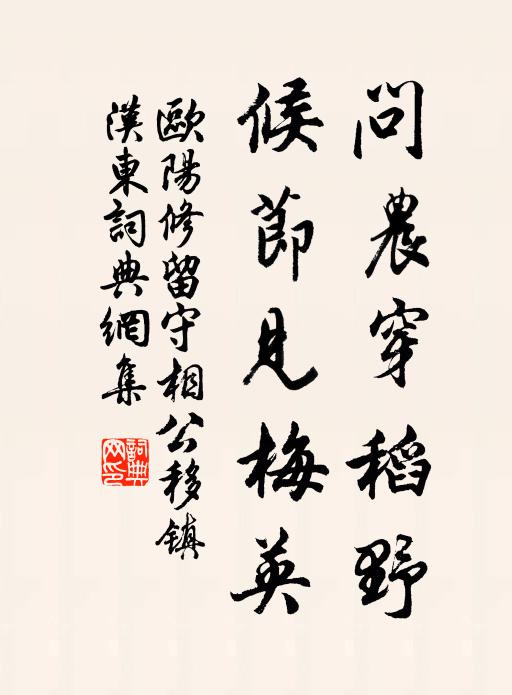 問農穿稻野
候節見梅英
歐陽修留守相公移鎮
漢東詞典網集
詞典網印